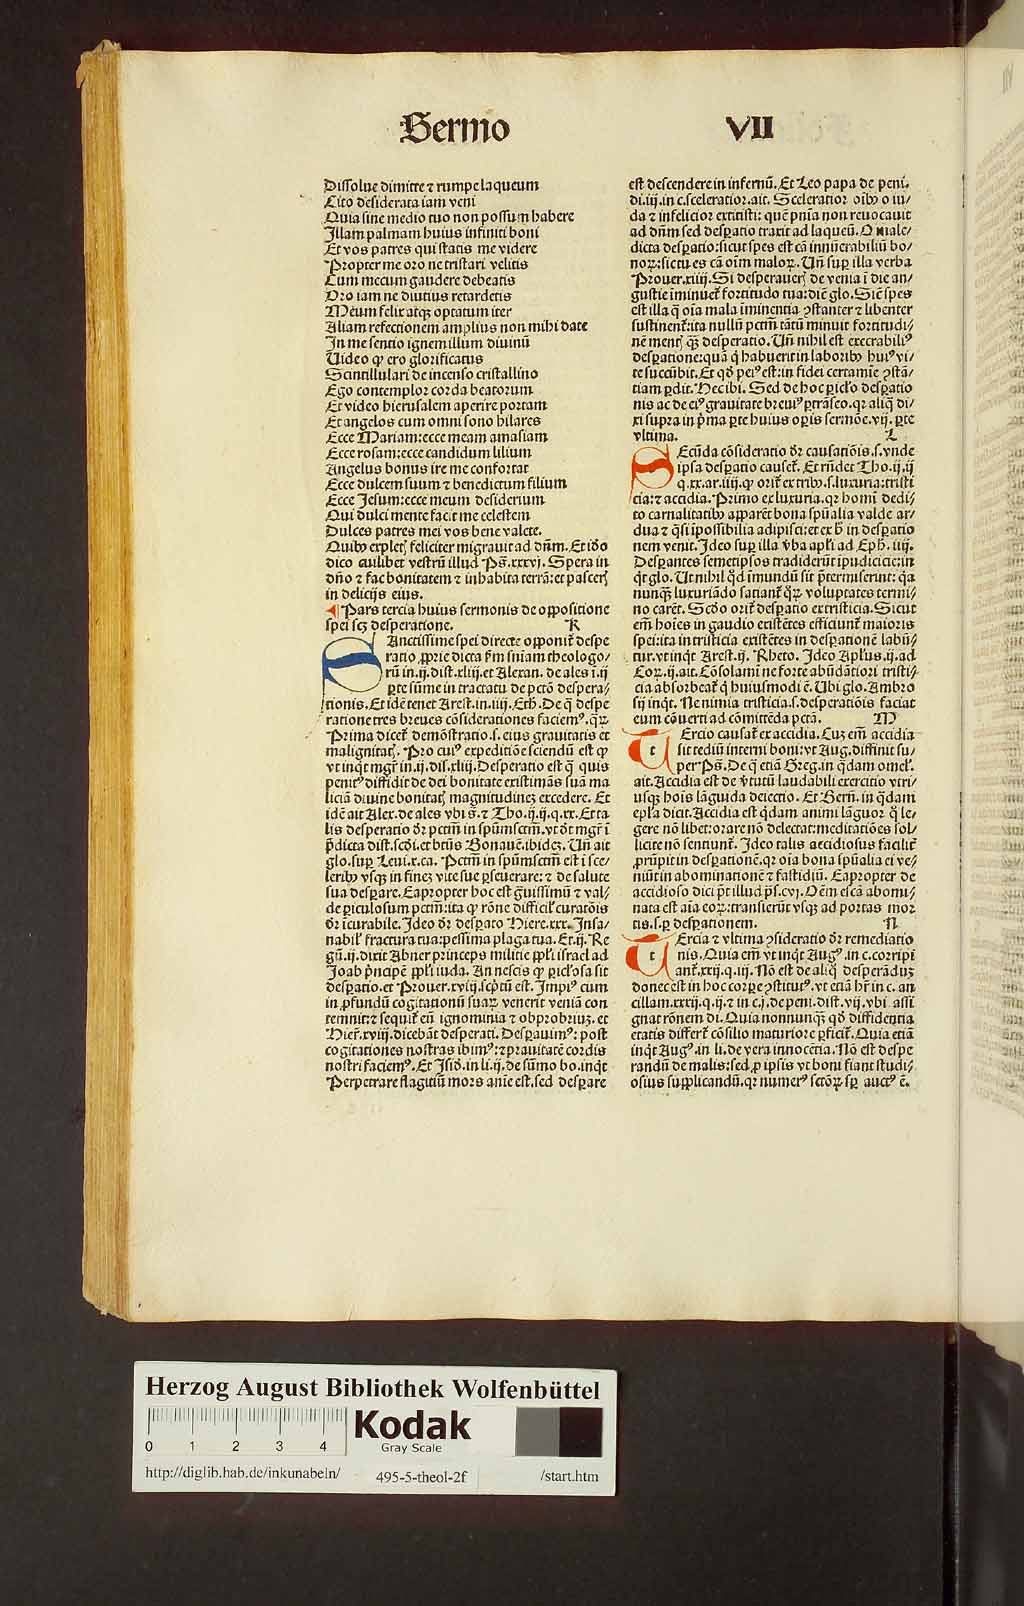 Sermo VII
Dissolue dimitte ⁊ rumpe laqueum
Cito desiderata iam veni
Quia sine medio tuo non possum habere
Illam palmam huius infiniti boni
Et vos patres qui statis me videre
Propter me oro ne tristari velitis
Cum mecum gaudere debeatis
Oro iam ne diutius retardetis
Meum felix atqꝫ optatum iter
Aliam refectionem amplius non mihi date
In me sentio ignem illum diuinū
Video ꝙ ero glorificatus
Scintillulari de incenso cristallino
Ego contemplor corda beatorum
Et video hierusalem aperire portam
Et angelos cum omni sono hilares
Ecce Mariam: ecce meam amasiam
Ecce rosam: ecce candidum lilium
Angelus bonus ire me confortat
Ecce dulcem suum ⁊ benedictum filium
Ecce Jesum: ecce meum desiderium
Qui dulci mente facit me celestem
Dulces patres mei vos bene valete.
Quibꝰ expletꝭ feliciter migrauit ad dn̄m. Et iō
dico cuilibet vestrū illud Ps̄. xxxvj. Spera in
dn̄o ⁊ fac bonitatem ⁊ inhabita terrā: et pascerꝭ
in delicijs eius.
¶ Pars tercia huius sermonis de oppositione
spei scꝫ desperatione. K
SAnctissime spei directe opponit᷑ despe
ratio ꝓprie dicta ẜm sniam theologo/
rū in .ij. dist. xliij. et Alexan. de ales i .ij
ꝑte sūme in tractatu de pctō despera/
tionis. Et idē tenet Arest. in .iiij. Eth. De q̄ despe
ratione tres breues cōsiderationes faciemꝰ. qꝝ
Prima dicet᷑ demōstratio .s. eius grauitatis et
malignitatꝭ. Pro cuiꝰ expeditiōe sciendū est ꝙ
vt inqt mgr̄ in .ij. dis. xliij. Desperatio est q̄ quis
penitꝰ diffidit de dei bonitate existimās suā ma
liciā diuine bonitatꝭ magnitudinez excedere. Et
idē ait Alex. de ales vbi s̄. ⁊ Tho. ij. ij. q. xx. Et ta
lis desperatio dr̄ pctm̄ in spūmsctm̄. vt dt mgr̄ i
p̄dicta dist. sc̄di. et btūs Bonauē. ibidez. Vn̄ ait
glo. suꝑ Leui. x. ca. Pctm̄ in spūmsctm̄ est i sce/
leribꝰ vsqꝫ in finez vite sue ꝑseuerare: ⁊ de salute
sua desꝑare. Eapropter hoc est gͣuissimū ⁊ val/
de ꝑiculosum pctm̄: ita ꝙ rōne difficil᷑ curatōis
dr̄ īcurabile. Ideo dr̄ desꝑato Hiere. xxx. Insa/
nabil᷑ fractura tua: pessima plaga tua. Et .ij. Re
gū. ij. dixit Abner princeps militie ppl̄i israel ad
Joab pͥncipē ppl̄i iuda. An nescis ꝙ ꝑicl̓osa sit
desꝑatio. et Prouer. xviij. scͥptū est. Impiꝰ cum
in ꝓfundū cogitationū suaꝝ venerit veniā con
temnit: ⁊ sequit᷑ eū ignominia ⁊ obprobriuꝫ. et
Hier. xviij. dicebāt desperati. Desꝑauimꝰ: post
cogitationes nostras ibimꝰ: ⁊ prauitatē cordis
nostri faciemꝰ. Et Isid. in li. ij. de sūmo bo. inqt
Perpetrare flagitiū mors anīe est. sed desꝑare
est descendere in infernū. Et Leo papa de peni.
di. iij. in c. sceleratior. ait. Sceleratior oībꝰ o iu/
da ⁊ infelicior extitisti: quē pnīa non reuocauit
ad dn̄m sed desꝑatio traxit ad laqueū. O male/
dicta desꝑatio: sicut spes est cā innūerabiliū bo/
noꝝ: sic tu es cā oīm maloꝝ. Vn̄ suꝑ illa verba
Prouer. xiiij. Si desperauerꝭ de venia ī die an/
gustie īminuet᷑ fortitudo tua: dicit glo. Sicut spes
est illa q̄ oīa mala iminentia ꝯstanter ⁊ libenter
sustinent᷑: ita nullū pctm̄ tātū minuit fortitudi/
nē mentꝭ qͣꝫ desperatio. Vn̄ nihil est execrabiliꝰ
desꝑatione: quā qͥ habuerit in laboribꝰ huiꝰ vi/
te succūbit. Et qd̄ peiꝰ est: in fidei certamīe ꝯstā/
tiam ꝑdit. Hec ibi. Sed de hoc ꝑicl̓o desꝑatio
nis ac de eiꝰ grauitate breuiꝰ ꝑtrāseo. qꝛ aliq̄ di/
xi supra in pͥma ꝑte huius oꝑis sermōe. vij. ꝑte
vltima. L
SEcūda cōsideratio dr̄ causatiōis .s. vnde
ipsa desꝑatio causet᷑. Et rn̄det Tho. ij. ij
q. xx. ar. iiij. ꝙ orit᷑ ex tribꝰ .s. luxuria: tristi
cia: ⁊ accidia. Primo ex luxuria. qꝛ homī dedi/
to carnalitatibꝰ apparēt bona spūalia valde ar/
dua ⁊ qͣsi īpossibilia adipisci: et ex h̓ in desꝑatio
nem venit. Ideo suꝑ illa vba apl̓i ad Eph. iiij.
Desꝑantes semetipsos tradiderūt ipudicicie: in
qt glo. Vt nihil qd̓ īmundū sit p̄termiserint: qͣa
nunqͣꝫ luxuriādo satiant᷑ qꝝ voluptates termi/
no carēt. Scd̓o orit᷑ desꝑatio ex tristicia. Sicut
em̄ hoīes in gaudio existētes efficiunt᷑ maioris
spei: ita in tristicia existētes in desꝑationē labū/
tur. vt inqt Arest. ij. Rheto. Ideo Apl̓us .ij. ad
Coꝝ. ij. ait. Cōsolami ne forte abūdātiori tristi/
cia absorbeat᷑ qͥ huiusmodi ē. Vbi glo. Ambro
sij inqt. Ne nimia tristicia .s. desperatiōis faciat
eum cōuerti ad cōmittēda pctā. M
TErcio causat᷑ ex accidia. Cuꝫ em̄ accidia
sit tediū interni boni: vt Aug. diffinit su/
per Ps̄. De q̄ etiā Greg. in qͣdam omel̓.
ait. Accidia est de vtutū laudabili exercitio vtri/
usqꝫ hoīs lāguida deiectio. Et Bern̄. in qͣdam
epl̓a dicit. Accidia est qͥdam animi lāguor qͦ le/
gere nō libet: orare nō delectat: meditatiōes sol/
licite nō sentiunt᷑. Ideo talis accidiosus facilit᷑
ꝓrūpit in desꝑationē. qꝛ oīa bona spūalia ei ve/
niūt in abominationē ⁊ fastidiū. Eapropter de
accidioso dici pōt illud ps̄. cvj. Om̄em escā abomi/
nata est aīa eoꝝ: transierūt vsqꝫ ad portas mor
tis .s. ꝑ desꝑationem. N
TErcia ⁊ vltima ꝯsideratio dr̄ remediatio
nis. Quia em̄ vt inqt Augꝰ. in c. corripi
ant᷑. xxij. q. iij. Nō est de aliq̄ desperāduꝫ
donec est in hoc corꝑe ꝯstitutꝰ. vt etiā hr̄ in c. an
cillam. xxxij. q. ij. ⁊ in c. j. de peni. dist. vij. vbi assi
gnat rōnem di. Quia nonnunqͣꝫ qd̓ diffidentia
etatis differt᷑ cōsilio maturiore ꝑficit᷑. Quia etiā
inqt Augꝰ. in li. de vera innocētia. Nō est despe
randū de malis: sed ꝓ ipsis vt boni fiant studi/
osius supplicandū. qꝛ numerꝰ sctōꝝ sꝑ auctꝰ ē.
Herzog August Bibliothek Wolfenbüttel
0 1 2 3 4
Kodak
Gray Scale
http://diglib.hab.de/inkunabeln/ 495-5-theol-2f /start.htm